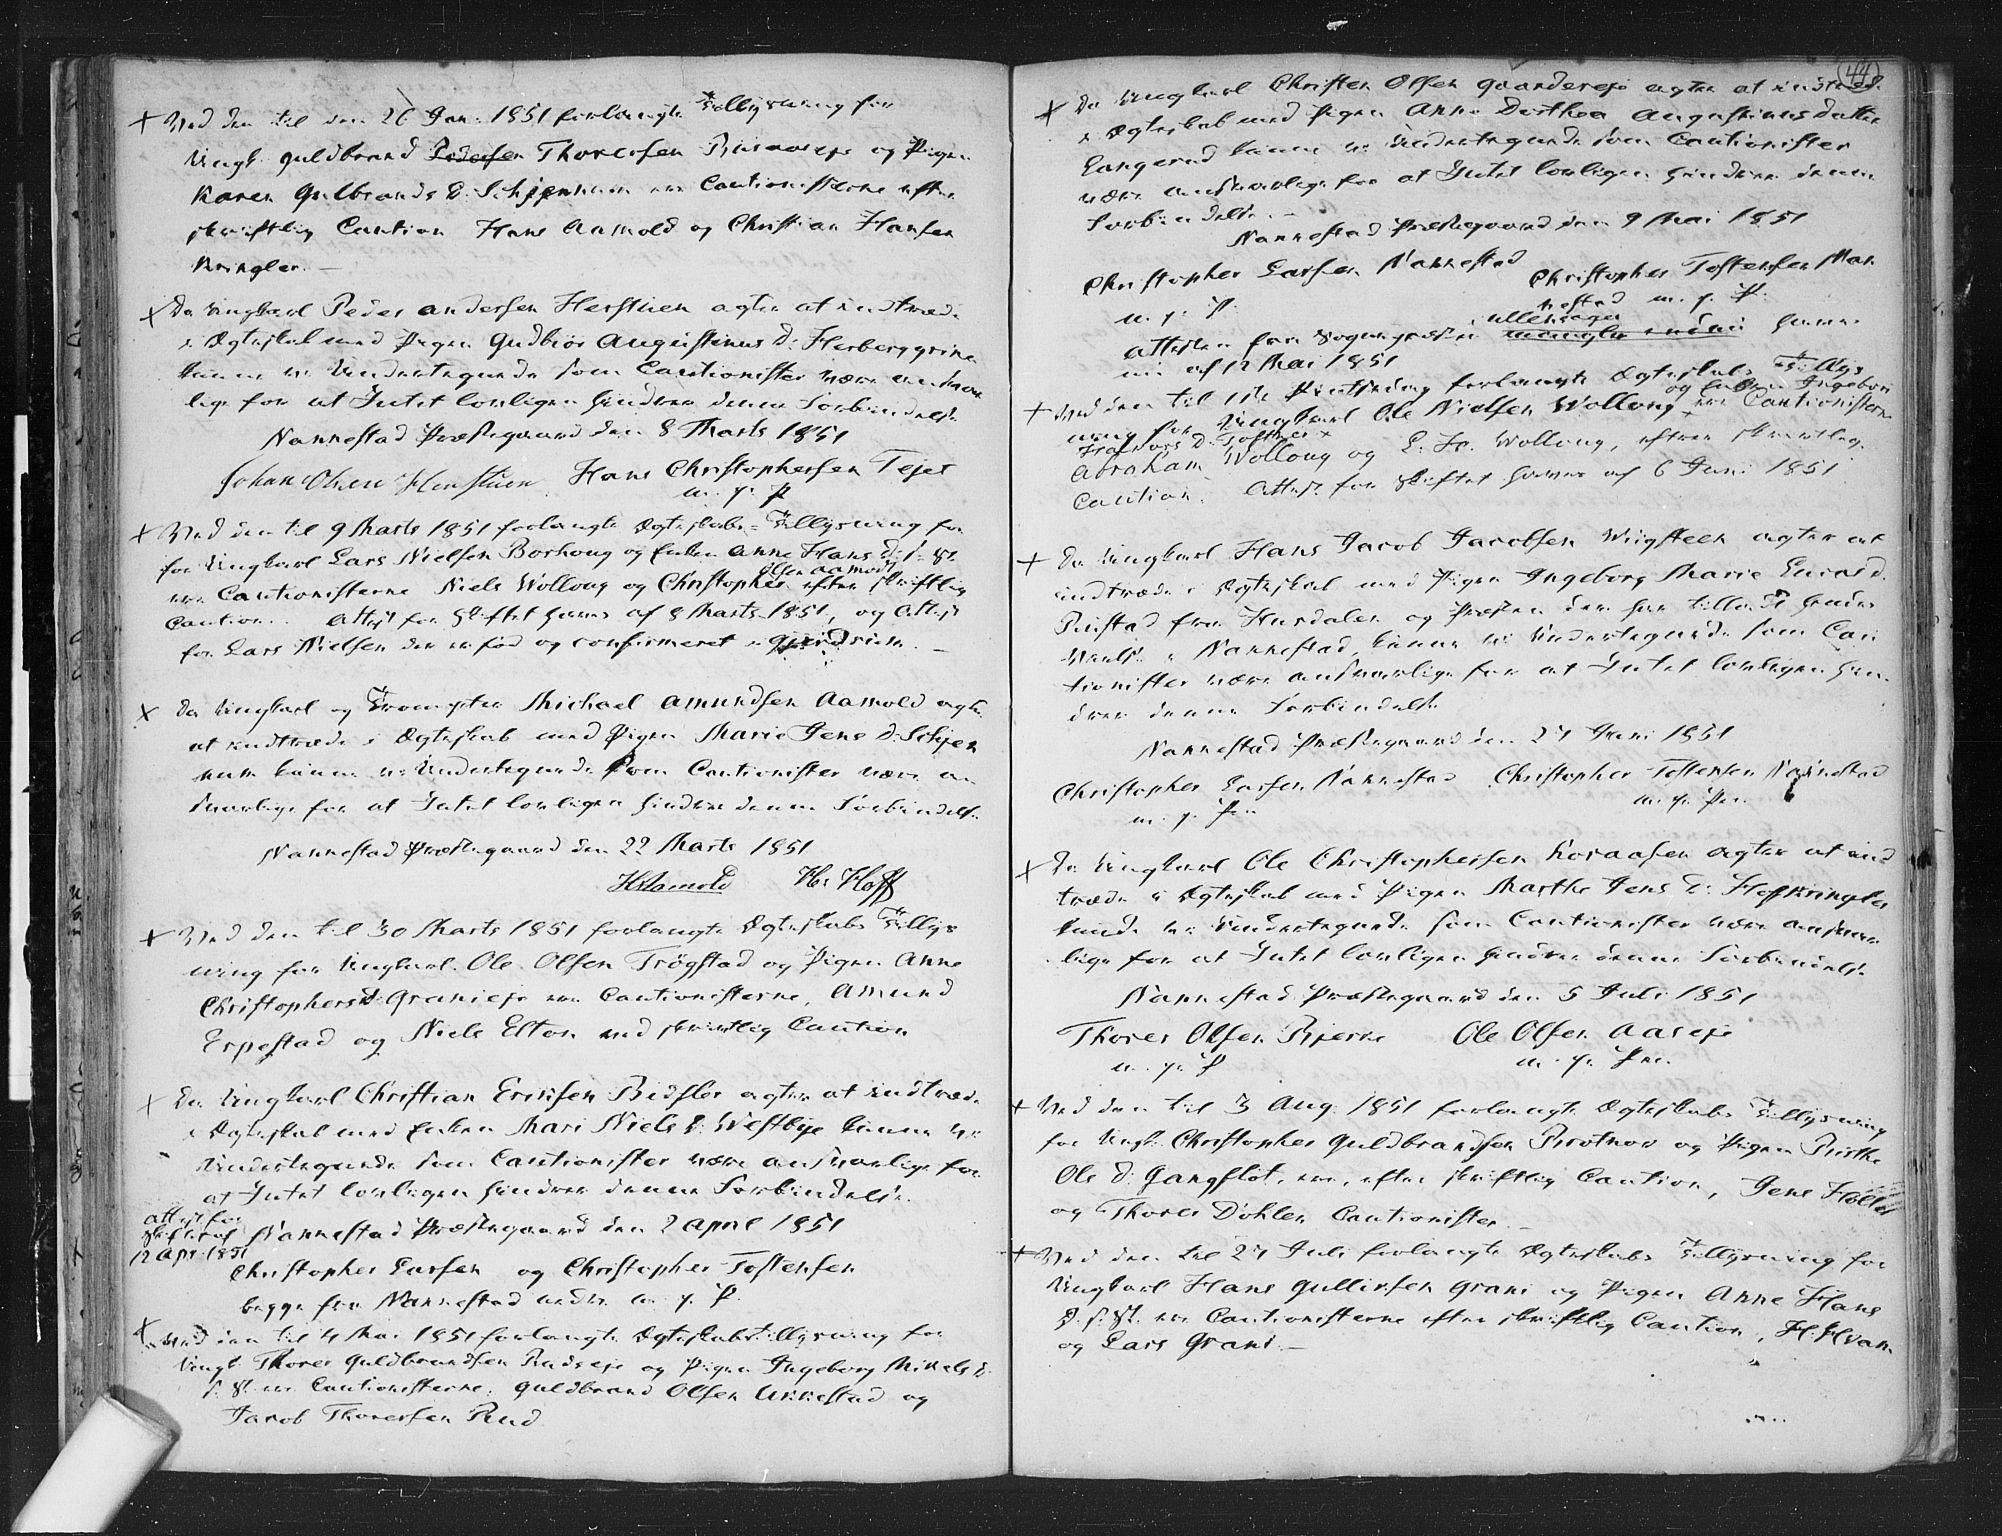 + Ved den til den 26 Jan: 1851 forlangte Tillysning for
Ungk: Guldbrand Pedersen Thoresen og Pigen
Karen Gulbrands D. Schjennum ere Cautionisterne efter
skriftlig Caution Hans Aamold og Christian Hansen
Kringler. –
x Da Ungkarl Peder Andersen Herstuen agter at indtræde
i Ægteskab med Pigen Gudbiør Augustinus D: Herberggrine
kunne vi Undertegnede som Cautionister være ansvar
lige for at Intet lovligen hindrer denne Forbindelse
Nannestad Præstegaard den 8 Marts 1851
Johan Olsen Henstuen Hans Christophersen Tejet
m. p. P
+ Ved den til 9 Marts 1851 forlangte Ægteskabs-Tillysning for
for Ungkarl Lars Nielsen Borhoug og Enken Anne Hans D: f: St.
Olsen Aamodt
ere Cautionisterne Niels Wollong og Christopher efter skriftlig
Caution. Attest fra Skiftet haves af 8 Marts 1851, og Attest
for Lars Nielsen der er fød og confirmeret i Gjerdrum. –
x Da Ungkarl og Trompeter Michael Amundsen Aamold agter
at indtræde i Ægteskab med Pigen Marie Jens D. Schjen
num kunne vi Undertegnede som Cautionister være an
svarlige for at Intet lovligen hindrer denne Forbindelse
Nannestad Præstegaard den 22 Marts 1851
HAamold Hs: Hoff
+ Ved den til 30 Marts 1851 forlangte Ægteskabs Tillys
ning for Ungkarl Ole Olsen Trøgstad og Pigen Anne
Christophers D: Granieje ere Cautionisterne, Amund
Erpestad og Niels Elton ved skriftlig Caution
x Da Ungkarl Christian Eriksen agter at indtræde
i Ægteskab med Enken Mari Niels D: Westbye kunne vi
Undertegnede som Cautionister være ansvarlige for
at Intet lovligen hindrer denne Forbindelse.
Attest fra
Skiftet af
12 Apr: 1851
Nannestad Præstegaard den 2 April 1851
Christopher Larsen og Christopher Tostensen
begge fra Nannestad m. p. P.
x Ved den til 4 Mai 1851 forlangte Ægteskabs Tillysning for
Ungk: Thorer Guldbrandsen Rudseje og Pigen Ingeborg Mikels D.
f. St. ere Cautionisterne: Guldbrand Olsen Unnestad og
Jacob Thoresen Rud
44
x Da Ungkarl Christen Olsen agter at indtræde
i Ægteskab med Pigen Anne Dorthea Augustinusdatter
Langerud kunne vi Undertegnede som Cautionister
være ansvarlige for at Intet lovligen hindrer denne
Forbindelse. –
Nannestad Præstegaard den 9 Mai 1851
Christopher Larsen Nannestad Christopher Tostensen Nan
m. p. P. nestad m. p. P.
Ullensager
Attesten fra Sognepræsten mangler endnu haves
nu af 12 Mai 1851
+ Ved den til 1ste Pintsedag forlangte Ægteskabs Tillys
og Enken Ingebor
ning for Ungkarl Ole Nielsen Wollong ere Cautionisterne
Abraham Wollong og L. Wollong, efter skriftlig
Caution. Attest fra Skiftet haves af 6 Juni 1851
+ Da Ungkarl Hans Jacob Jacobsen Wiigsteen agter at
indtræde i Ægteskab med Pigen Ingeborg Marie
Rustad fra Hurdalen og Præsten der har tilladt hendes
Vielse i Nannestad, kunne vi Undertegnede som Cau
tionister være ansvarlige for at Intet lovligen hin
drer denne Forbindelse
Nannestad Præstegaard den 27 Juni 1851
Christopher Larsen Nannestad Christopher Tostensen Nannestad
m. p. Pen m. p. Pen
x Da Ungkarl Ole Christophersen Koraasen agter at ind
træde i Ægteskab med Pigen Marthe Jens D: Hoffkringler
kunde vi Undertegnede som Cautionister være ansvar
lige for at Intet lovligen hindrer denne Forbindelse
Nannestad Præstegaard den 5 Juli 1851
Thorer Olsen Bjerke Ole Olsen Aaseje
m. p. P m. p. Pen.
+ Ved den til 3 Aug: 1851 forlangte Ægteskabs Tillysning
for Ungk: Christopher Guldbrandsen Brotnov og Pigen Birthe
Ole D: Gangflot, ere, efter skriftlig Caution, Jens Holter
og Thorer Døhlen Cautionister. –
+ Ved den til 27 Juli forlangte Ægteskabs Tillysning for
Ungkarl Hans Gulliksen Grani og Pigen Anne Hans
D. f. St. ere Cautionisterne efter skriftlig Caution,
og Lars Grani. –